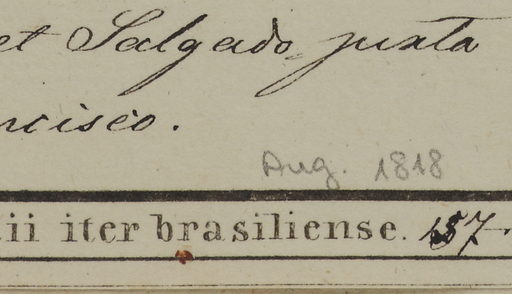 et Salgado, juxta
ncisco.
Aug. 1818
ii iter brasiliense. 157.